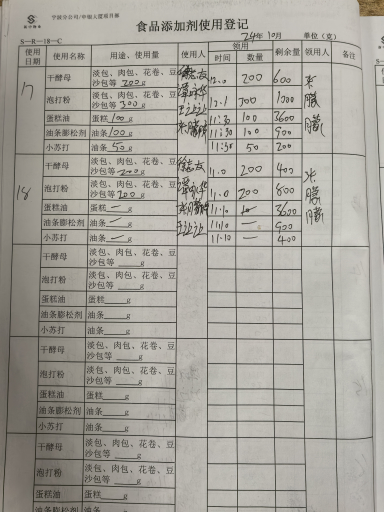 食品添加剂使用登记
S-R-18-C
24年10月 单位（克）
使用日期 使用名称 用途、使用量 使用人 领用 剩余量 领用人 备注
时间 数量
17
干酵母 淡包、肉包、花卷、豆沙包等 200 g 200 600
泡打粉 淡包、肉包、花卷、豆沙包等 300 g 300
蛋糕油 蛋糕 100 g 11:30 100 3600
油条膨松剂 油条 100 g 11:30 100 900
小苏打 油条 50 g 11:30 50 200
18
干酵母 淡包、肉包、花卷、豆沙包等 200 g 11.0 200 400
泡打粉 淡包、肉包、花卷、豆沙包等 200 g 11.0 200 800
蛋糕油 蛋糕 — g 11.10 3600
油条膨松剂 油条 — g 11.10 — 900
小苏打 油条 — g 11.10 — 400
干酵母 淡包、肉包、花卷、豆沙包等 ____g
泡打粉 淡包、肉包、花卷、豆沙包等 ____g
蛋糕油 蛋糕____g
油条膨松剂 油条____g
小苏打 油条____g
干酵母 淡包、肉包、花卷、豆沙包等 ____g
泡打粉 淡包、肉包、花卷、豆沙包等 ____g
蛋糕油 蛋糕____g
油条膨松剂 油条____g
小苏打 油条____g
干酵母 淡包、肉包、花卷、豆沙包等 ____g
泡打粉 淡包、肉包、花卷、豆沙包等 ____g
蛋糕油 蛋糕____g
油条膨松剂 油条____g